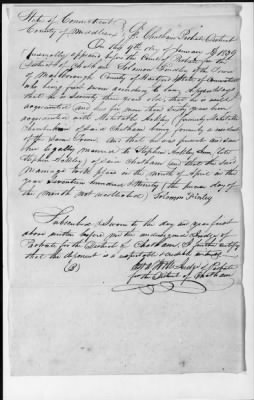 State of Connecticut
County of Middlesex } ss. Chatham Probate District
On this 9th day of January AD 1839
personally appeared before the Court of Probate for the
District of Chatham Solomon Finley of the Town
of Marlborough County of Hartford State of Connecticut
who being first sworn according to law, deposes & says
that he is seventy three years old, that he is well
acquainted and has for more than sixty years been
acquainted with Mehitable Ackley (formerly Mehitable
of said Chatham being formerly a resident
of the same town. And that he was present and saw
her legally married to Stephen Ackley
Stephen Ackley) of said Chatham and that the said
Marriage took place in the month of April in the
year seventeen hundred & ninety (the precise day of
the month not recollected) Solomon Finley
Subscribed & sworn to the day and year first
above written before me the undersigned Judge of
Probate for the District of Chatham. I further certify
that the deponent is a respectable & credible
Judge of Probate
for the District of Chatham